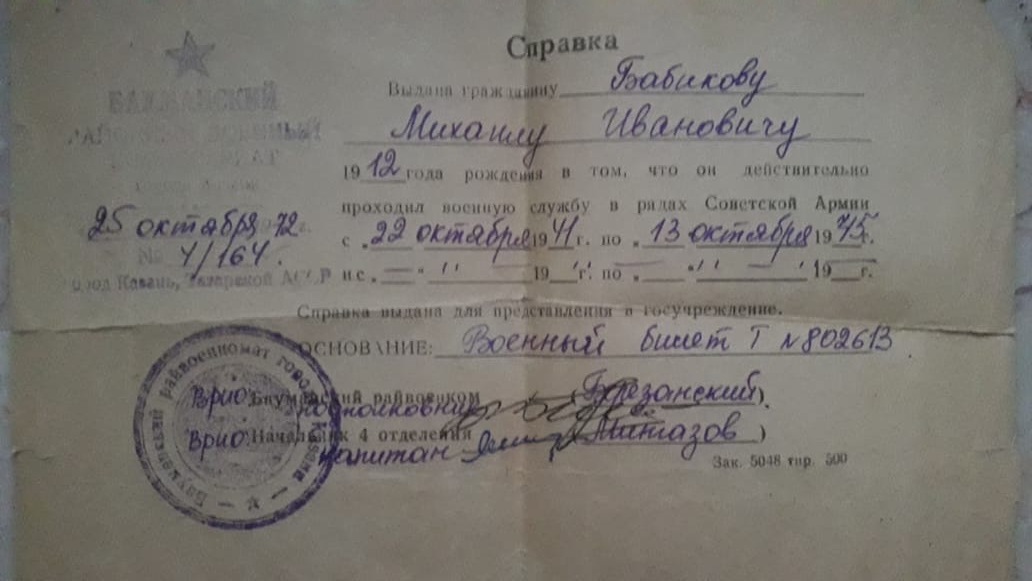 Справка
Выдана гражданину Бабикову
Михаилу Ивановичу
1912 года рождения в том, что он действительно
проходил военную службу в рядах Советской Армии
с „22 октября 1941 г. по „13 октября 1945 г.
и с „— “ ″ — 19 ″ г. по „— “ ″ — ″ 19— г.
Справка выдана для представления в госучреждение.
ОСНОВАНИЕ: Военный билет Т №802613
Врио Баумански райвоенком (Березанский)
подполковник
Врио Начальник 4 отделения
капитан
Зак. 5048 тир. 500
БАУМАНСКИЙ
25 октября 1972г.
№ 4/164.
город Казань, Татарской АССР
Бауманский райвоенкомат города Казани